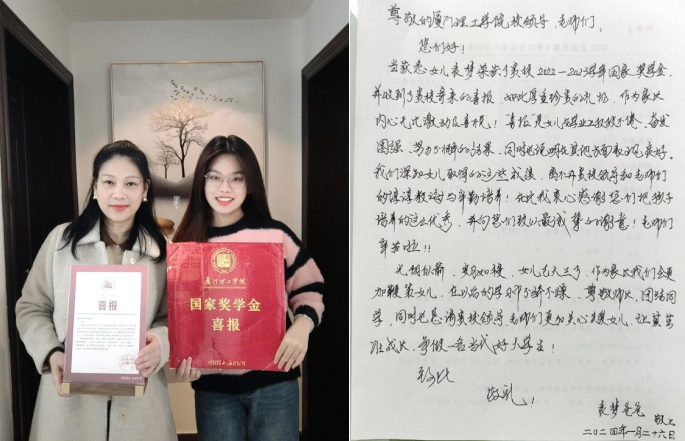 喜报
厦门理工学院
国家奖学金
喜报
尊敬的厦门理工学院校领导、老师们:
您们好!
当获悉女儿袁梦荣获了贵校2022—2023学年国家奖学金,
并收到了贵校寄来的喜报,如此厚重珍贵的礼物,作为家长
内心无比激动及喜悦!喜报是女儿在学业上孜孜不倦、奋发
图强、努力了的结果,同时也说明在其他方面表现良好。
我们深知女儿取得的这些成绩,离不开贵校领导和老师们
的谆谆教诲与辛勤培养!在此我衷心感谢您们把孩子
培养的这么优秀,并向您们致以最诚挚的谢意!老师们
辛苦啦!!
光阴似箭,岁月如梭,女儿已大三了,作为家长我们会更
加鞭策女儿,在以后的学习中不骄不躁,尊敬师长,团结同
学,同时也恳请贵校领导、老师们更加关心关爱女儿,让其茁
壮成长,争做一名当代好大学生!
此致
敬礼!
袁梦爸爸
敬上
二〇二四年一月二十六日